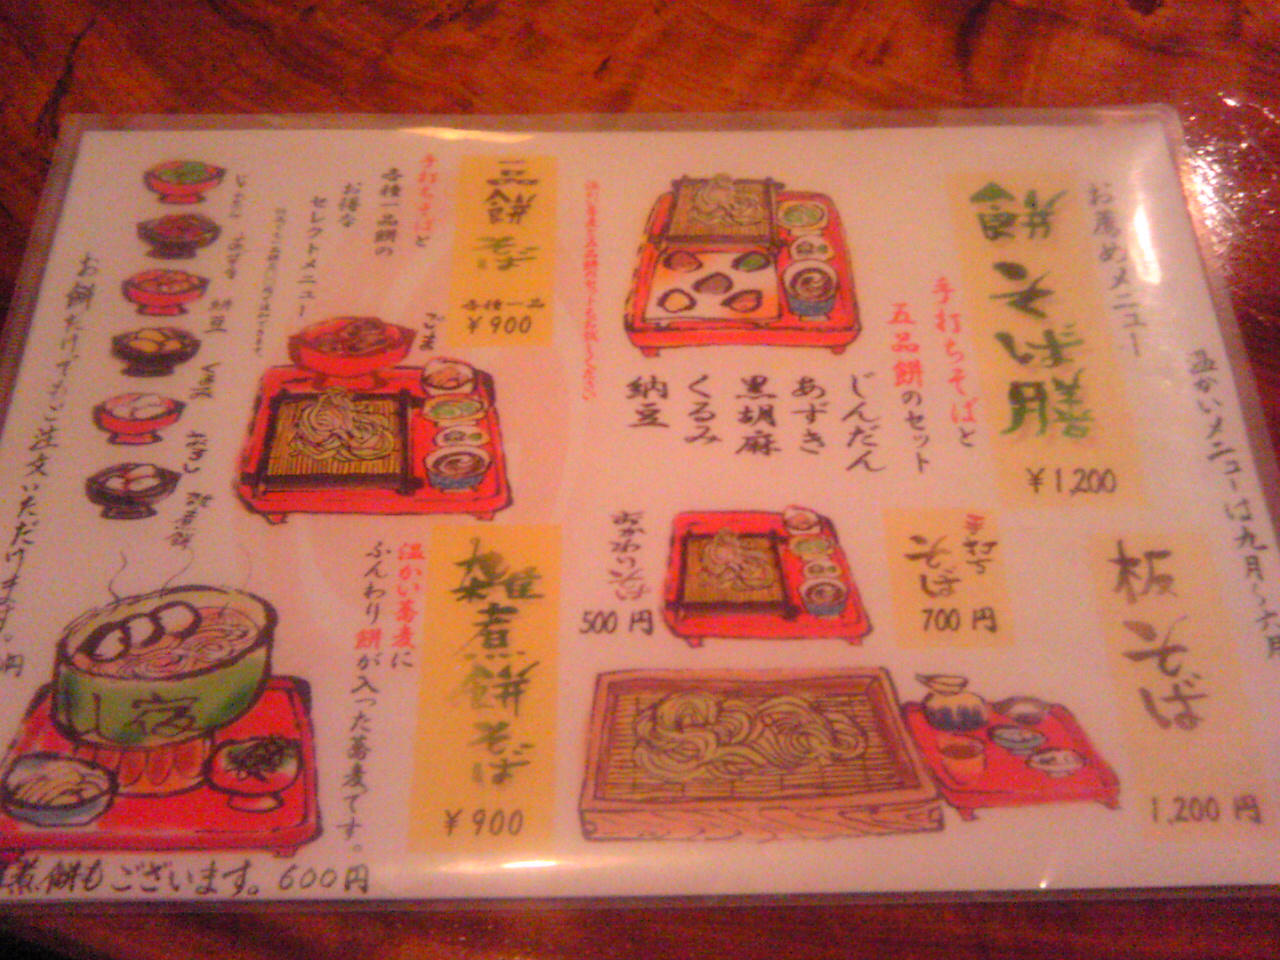 お薦めメニュー
餅そば膳
¥1,200
手打ちそばと
五品餅のセット
じんだん
あずき
黒胡麻
くるみ
納豆
板そば
1,200円
手打ち
そば
700円
おかわりそば
500円
一品餅
そば
各種一品
¥900
手打ちそばと
各種一品餅の
お得な
セレクトメニュー
ごま
じんだん
あずき
納豆
くるみ
雑煮餅
お餅だけでもご注文いただけます。
円
雑煮餅そば
¥900
温かい蕎麦に
ふんわり餅が入った蕎麦です。
宿
煮餅もございます。600円
温かいメニューは九月〜六月